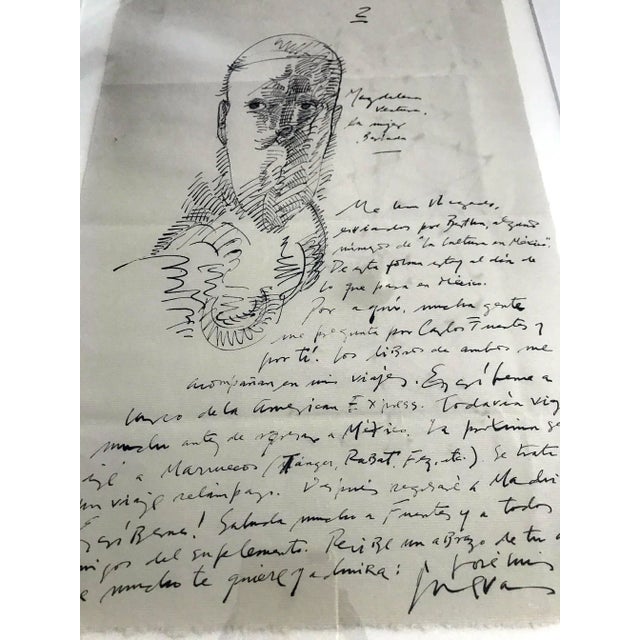 2
Magdalena
Ventura,
la mujer
Barbada
Me han llegado,
enviados por Benítez, algunos
números de "La Cultura en México".
De esta forma estoy al día de
lo que pasa en México.
Por aquí, mucha gente
me pregunta por Carlos Fuentes y
por tí. Los libros de ambos me
acompañan en mis viajes. Escríbeme a
cargo de la American Express. Todavía viaj
mucho antes de regresar a México. La próxima se
iré a Marruecos (Tánger, Rabat, Fez, etc.). Se trata
un viaje relámpago. Después regresaré a Madri
Escríbeme! Saluda mucho a Fuentes y a todos
migos del suplemento. Recibe un abrazo de tu a
e mucho te quiere y admira:
José Luis
Cuevas